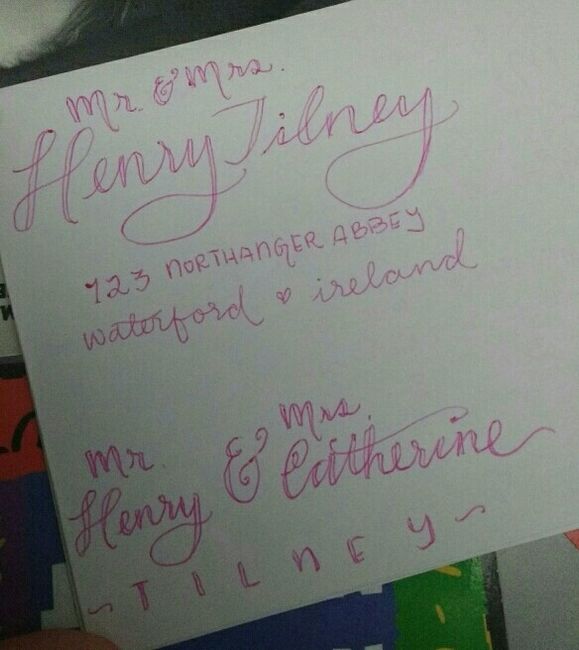 Mr. & Mrs.
Henry Tilney
123 NORTHANGER ABBEY
waterford ♡ ireland
Mr. & Mrs.
Henry Catherine
~ T I L N E Y ~